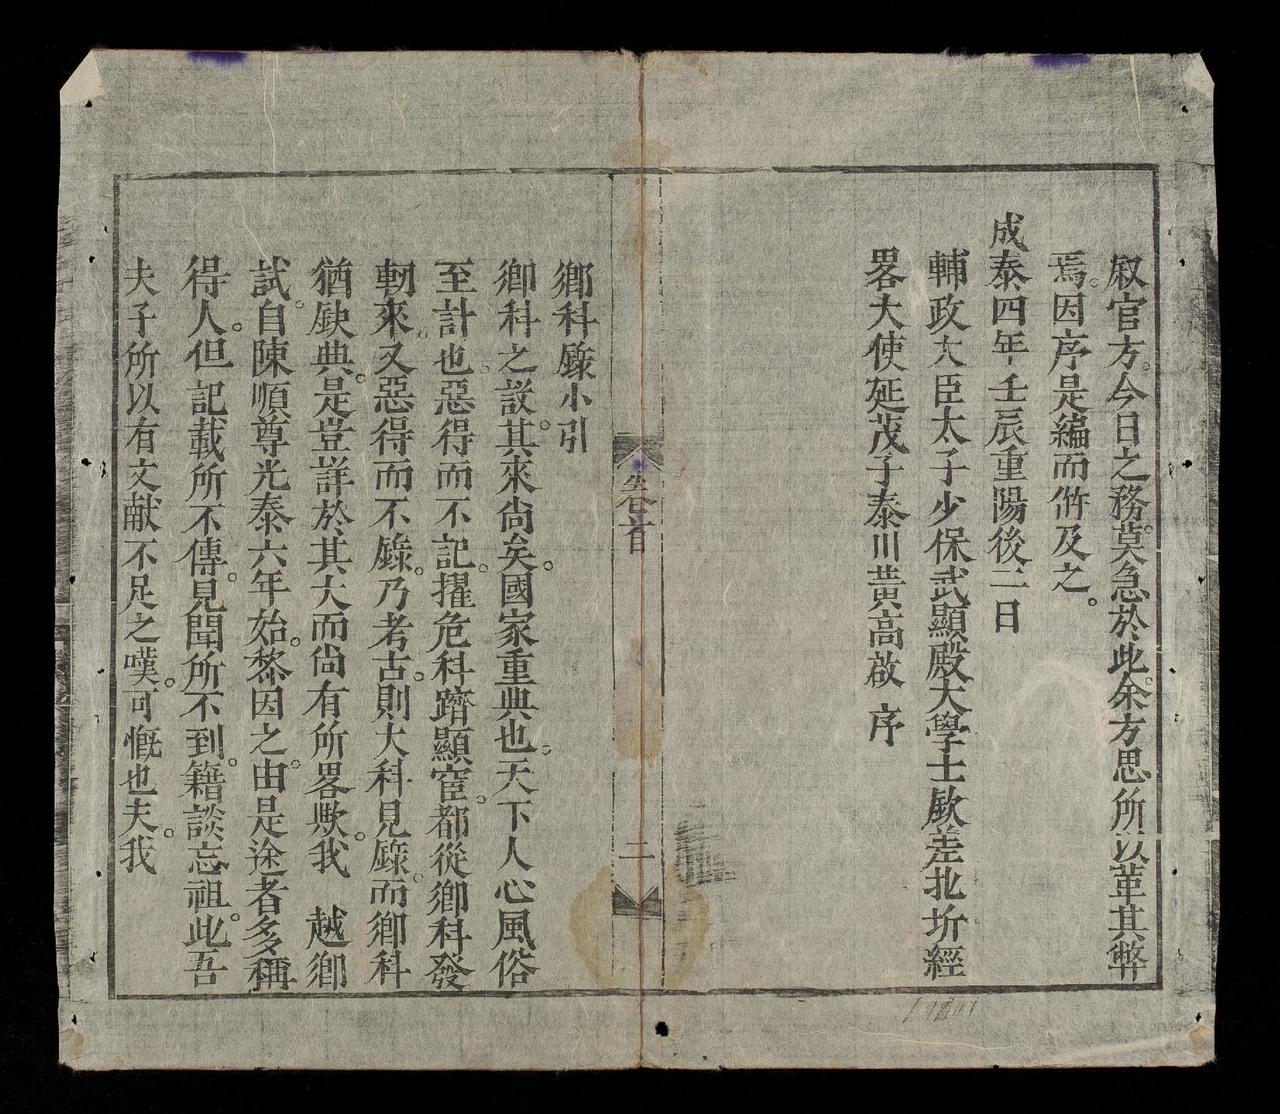 叙官方。今日之務。莫急於此。余方思所以革其弊
焉。因序是編而倂及之。
成泰四年壬辰重陽後二日
輔政大臣太子少保武顯殿大學士欽差北圻經
畧大使延茂子泰川黃高啟 序
卷首
二
鄉科錄小引
鄉科之設。其來尙矣。國家重典也。天下人心風俗
至計也。惡得而不記。擢危科躋顯宦。都從鄉科發
軔來。又惡得而不錄。乃考古。則大科見錄。而鄉科
猶缺典。是豈詳於其大而尙有所畧歟。我 越鄉
試。自陳順尊光泰六年始。黎因之。由是途者多稱
得人。但記載所不傳。見聞所不到。籍談忘祖。此吾
夫子所以有文献不足之嘆。可慨也夫。我